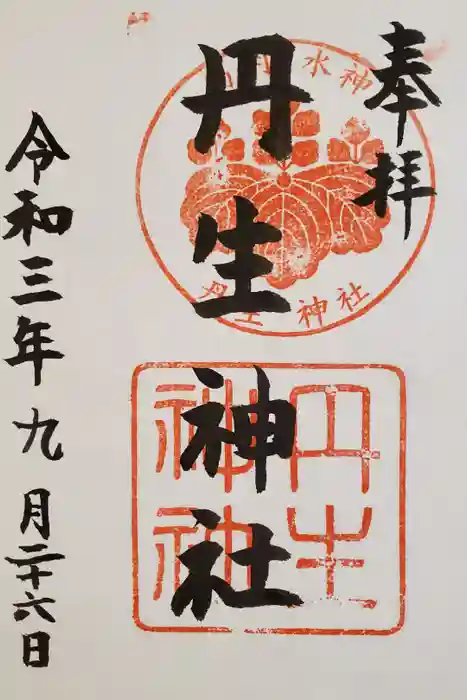 奉拝
丹生神社
令和三年九月二十六日
水神
丹生神社
丹生
神社